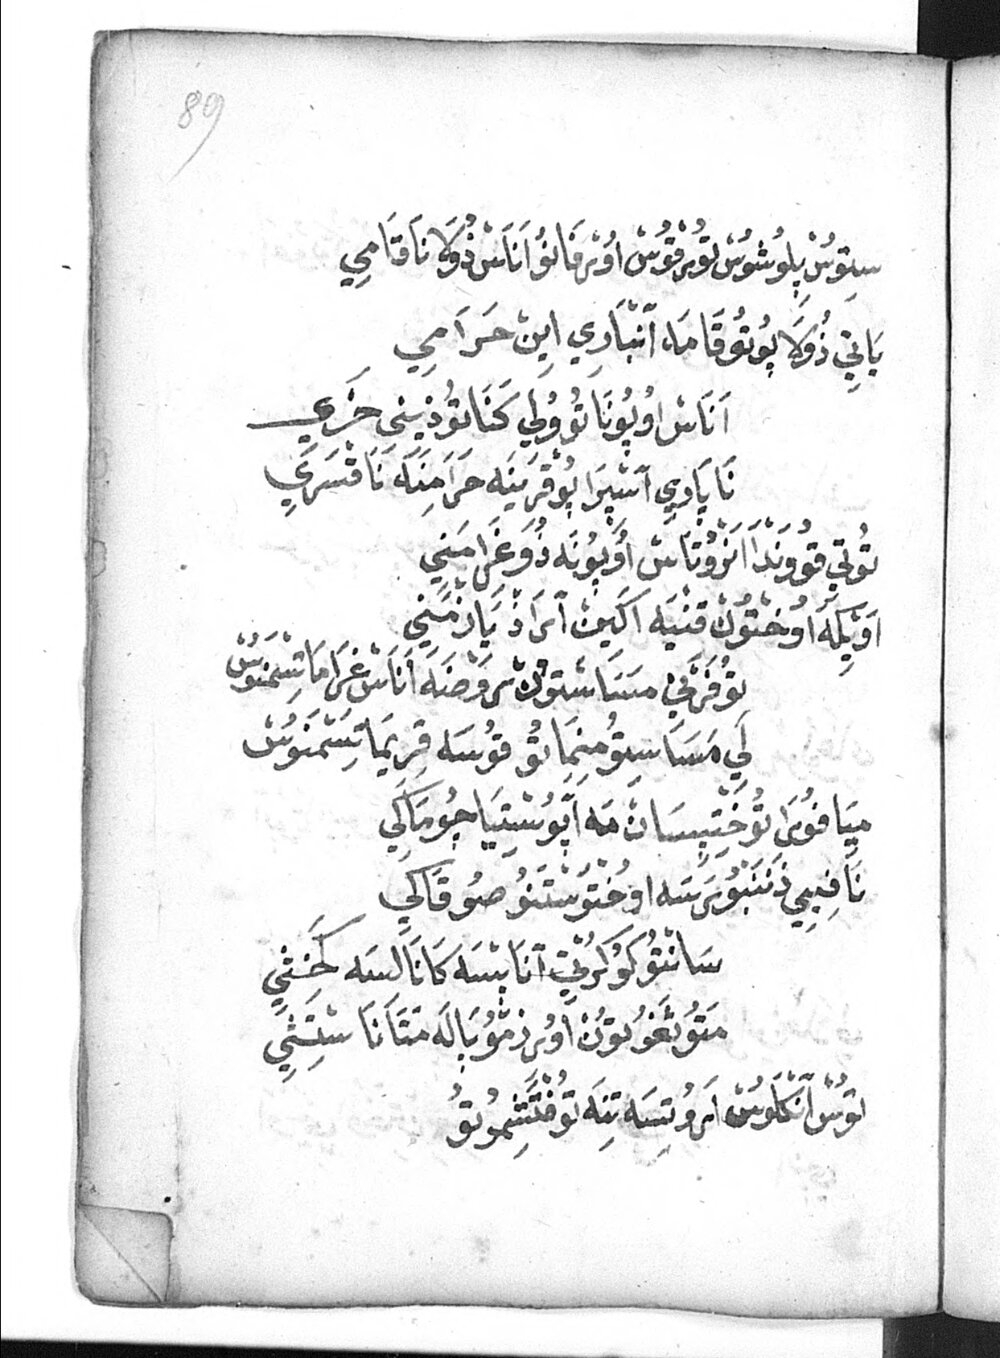 89
سِتِوُسْ پِلوُسُوسْ تُوُرْقوُسْ اوُرْفَانُو اَنَاسْ ذُولَا نَاقَامِي
يَاتِي ذُولَا پوُتُوقَامَا، آنْبَارِي اِينْ حَرَامِي
اَنَاسْ اوُپُونَا تُووُلِي كَنَاتوُذِينِي خَرِي
نَا پَارِي آسْپِرَا پوُقْرَيَنَه حَرَامِنَه نَا قْسَرِي
تُوتِي قوُوَنْدَا اَنْرُوتَاسْ اوُپوُنَه ذُوَغَرَامَنِي
اَوْپِكَه اوُخْتوُنْ قَنْيَه اَكَينْ آرَاذْ يَارْمَنِي
توُفَرَنِي مَسَاسْتوُنْ رَوْضَه اَنَاسْ غِرَامَاتِسْمَنوُسْ
لِي مَسَاسِتوُمِنِمَاتوُ قوُسَه قِرِيمَاتِسْمَنوُسْ
مِيَافوُرَا توُخْتِپِسَانْ مَه آپوُسْتِيَا چوُمَاكِي
نَافِيي ذَنَنْبوُرَسَه اوُخْتوُسْتَنوُ صُوقَاكِي
سَانْتوُكوُكرُتِي آنَابْسَه كَانَالسَه كَخَنْثِي
مَتوُثغوُتوُنْ اوُرذَمْوُ بَالَه مَتَانَا سْتَنْثِي
توُسْ آنْكَلوُسْ اَرْوُتِسَه تِنَه توُخْتَنِمُوتوُ